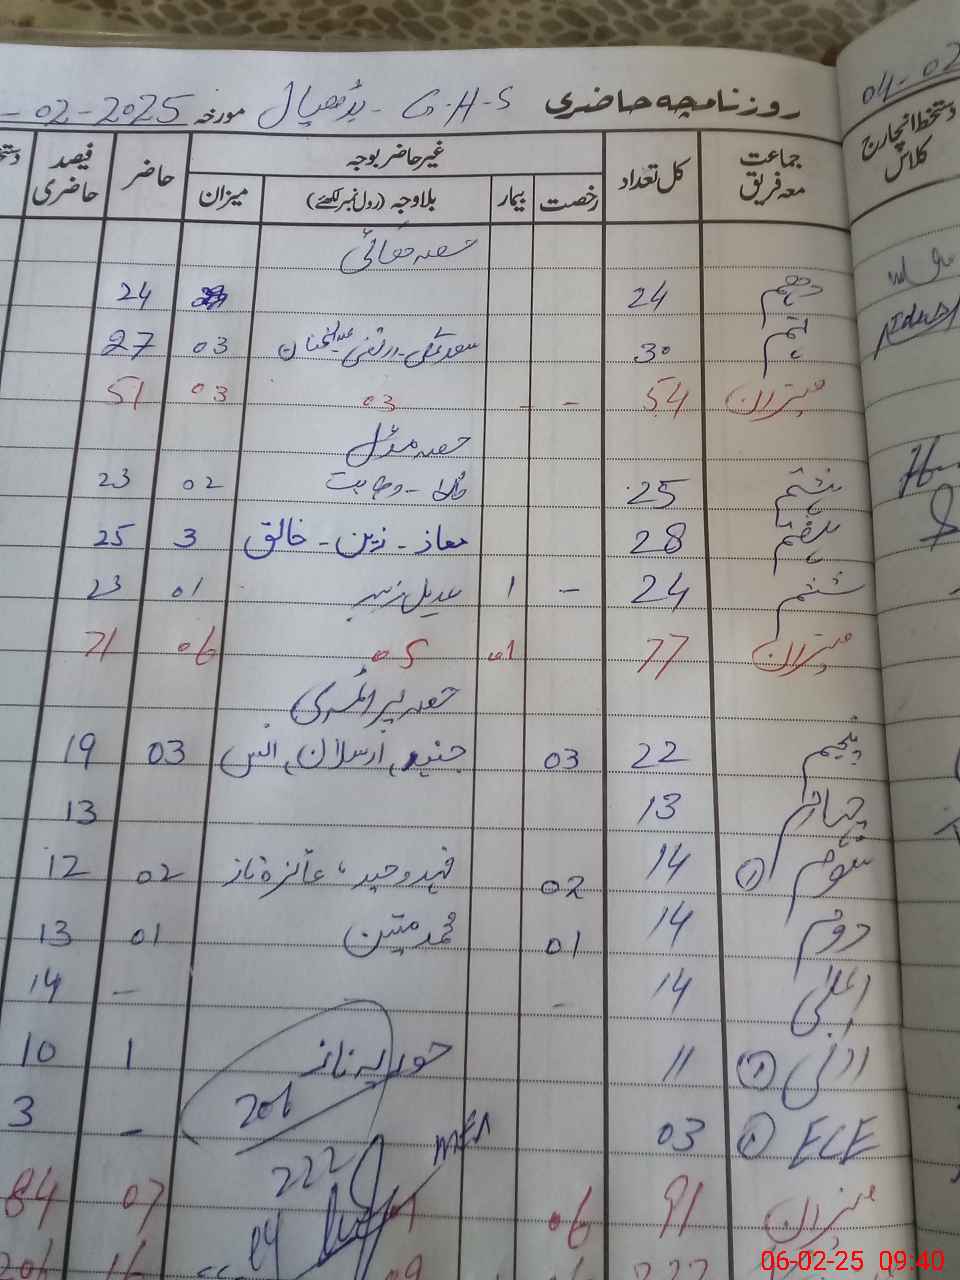 روزنامچہ حاضری G.H.S - بڈھیال مورخہ -02-2025
جماعت معہ فریق کل تعداد غیر حاضر بوجہ حاضر فیصد حاضری
رخصت بیمار بلاوجہ (رول نمبر لکھئے) میزان
حصہ ہائی
دہم 24 24
نہم 30 03 27
میزان 54 - - 03 03 51
حصہ مڈل
ہشتم 25 02 23
ہفتم 28 معاذ - زین - خالق 3 25
ششم 24 - 1 عدیل زبیر 01 23
میزان 77 01 05 06 71
حصہ پرائمری
پنجم 22 03 جنید، ارسلان، انس 03 19
چہارم 13 13
سوئم (1) 14 02 فہد وحید، عائزہ ناز 02 12
دوم 14 01 محمد متین 01 13
اعلیٰ 14 - - 14
ادنیٰ 11 حوریہ ناز 1 10
ECE 03 - 3
206
222
میزان 91 06 07 84
222 09 16 206
04-02
دستخط انچارج کلاس
06-02-25 09:40